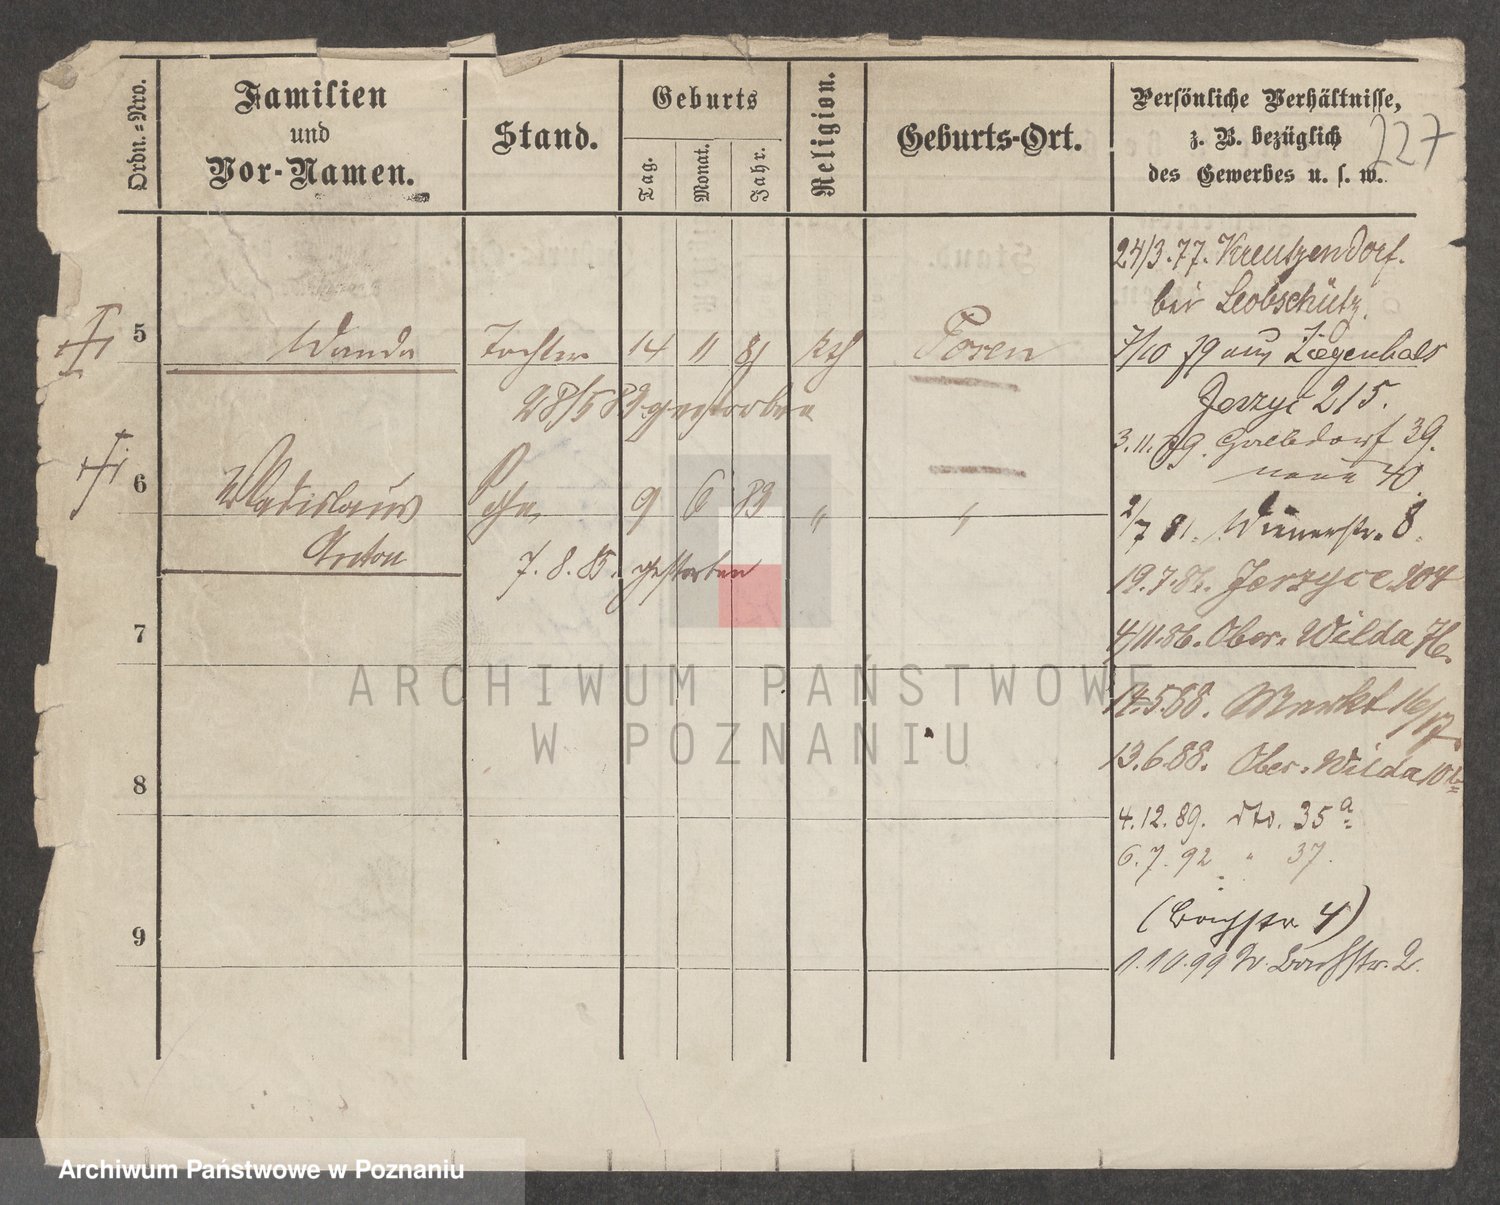 Ordn.-Nro.
Familien
und
Vor-Namen.
Stand.
Geburts
Tag.
Monat.
Jahr.
Religion.
Geburts-Ort.
Persönliche Verhältnisse,
z. B. bezüglich
des Gewerbes u. s. w.
227
24/3.77. Kreutzendorf
bei Leobschütz
5 Wanda Tochter 14 11 81 kth Posen
7/10 79 aus Ziegenhals
28/5 83 gestorben
Jerzyc 215.
3.11.79. 39.
neue 40
6 Wladislaus 9 6 83 " "
Anton
2/7 81. Wienerstr. 8.
7. 8. 85. gestorben
19.7.86. Jerzyce 104
7
4/11.86. Ober-Wilda 76.
14.5.88. Markt 16/17
13.6.88. Ober-Wilda 10b
8
4.12.89. dto. 35a
6.7.92 " 37.
(Bachstr 4)
9
1.10.99 W. Bachstr. 2.
ARCHIWUM PAŃSTWOWE
W POZNANIU
Archiwum Państwowe w Poznaniu